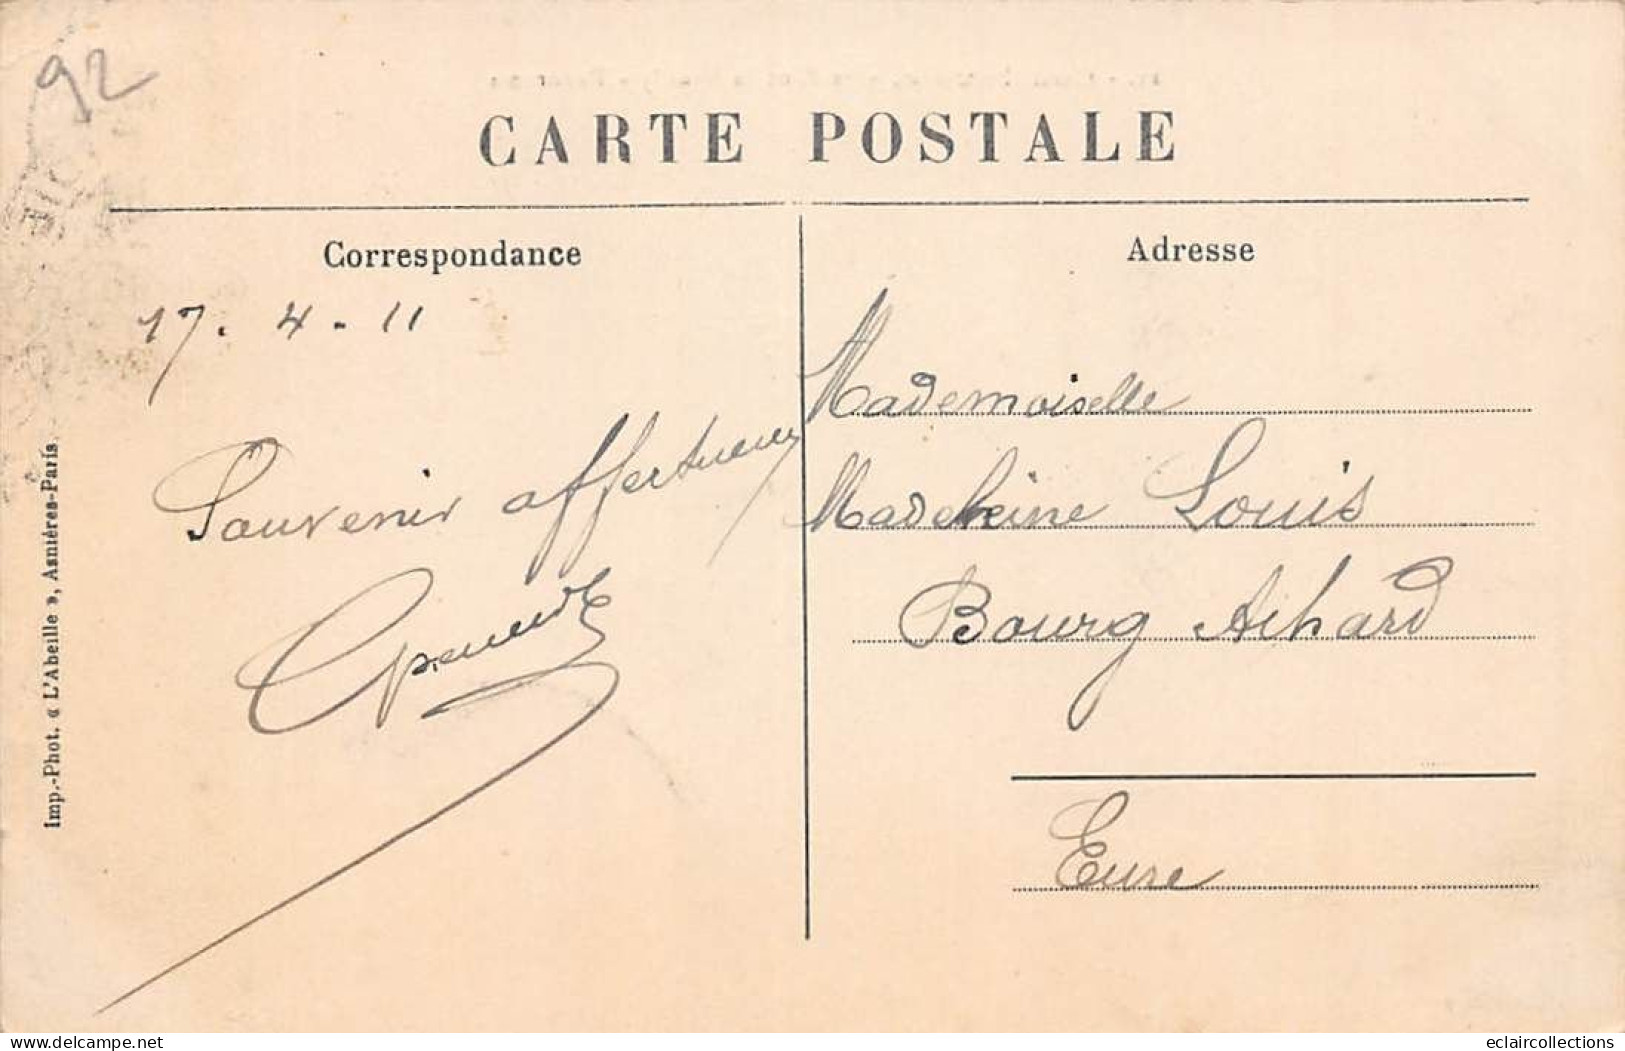 92
CARTE POSTALE
Correspondance
17. 4. 11
Souvenir affectueux
Imp.-Phot. « L'Abeille », Asnières-Paris
Adresse
Mademoiselle
Madeleine Louis
Bourg Achard
Eure
delcampe.net
eclaircollections